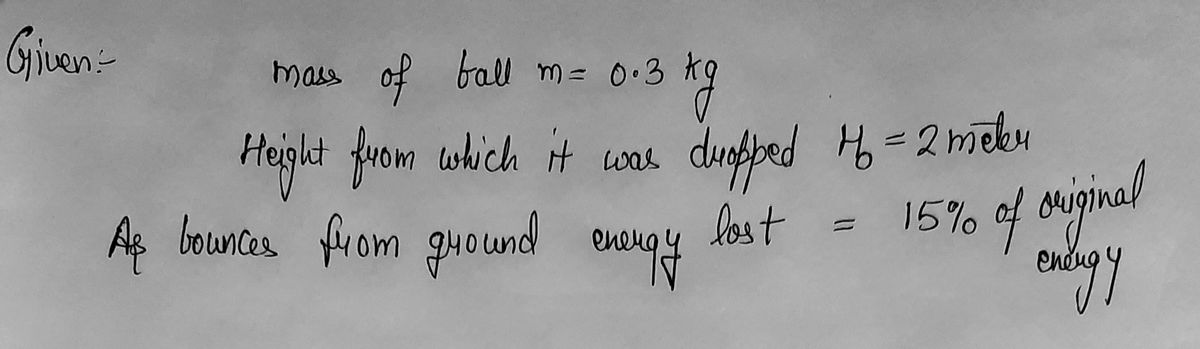 Given:-
mass of ball m = 0.3 kg
Height from which it was dropped H₀ = 2 meter
As bounces from ground energy lost = 15% of original energy